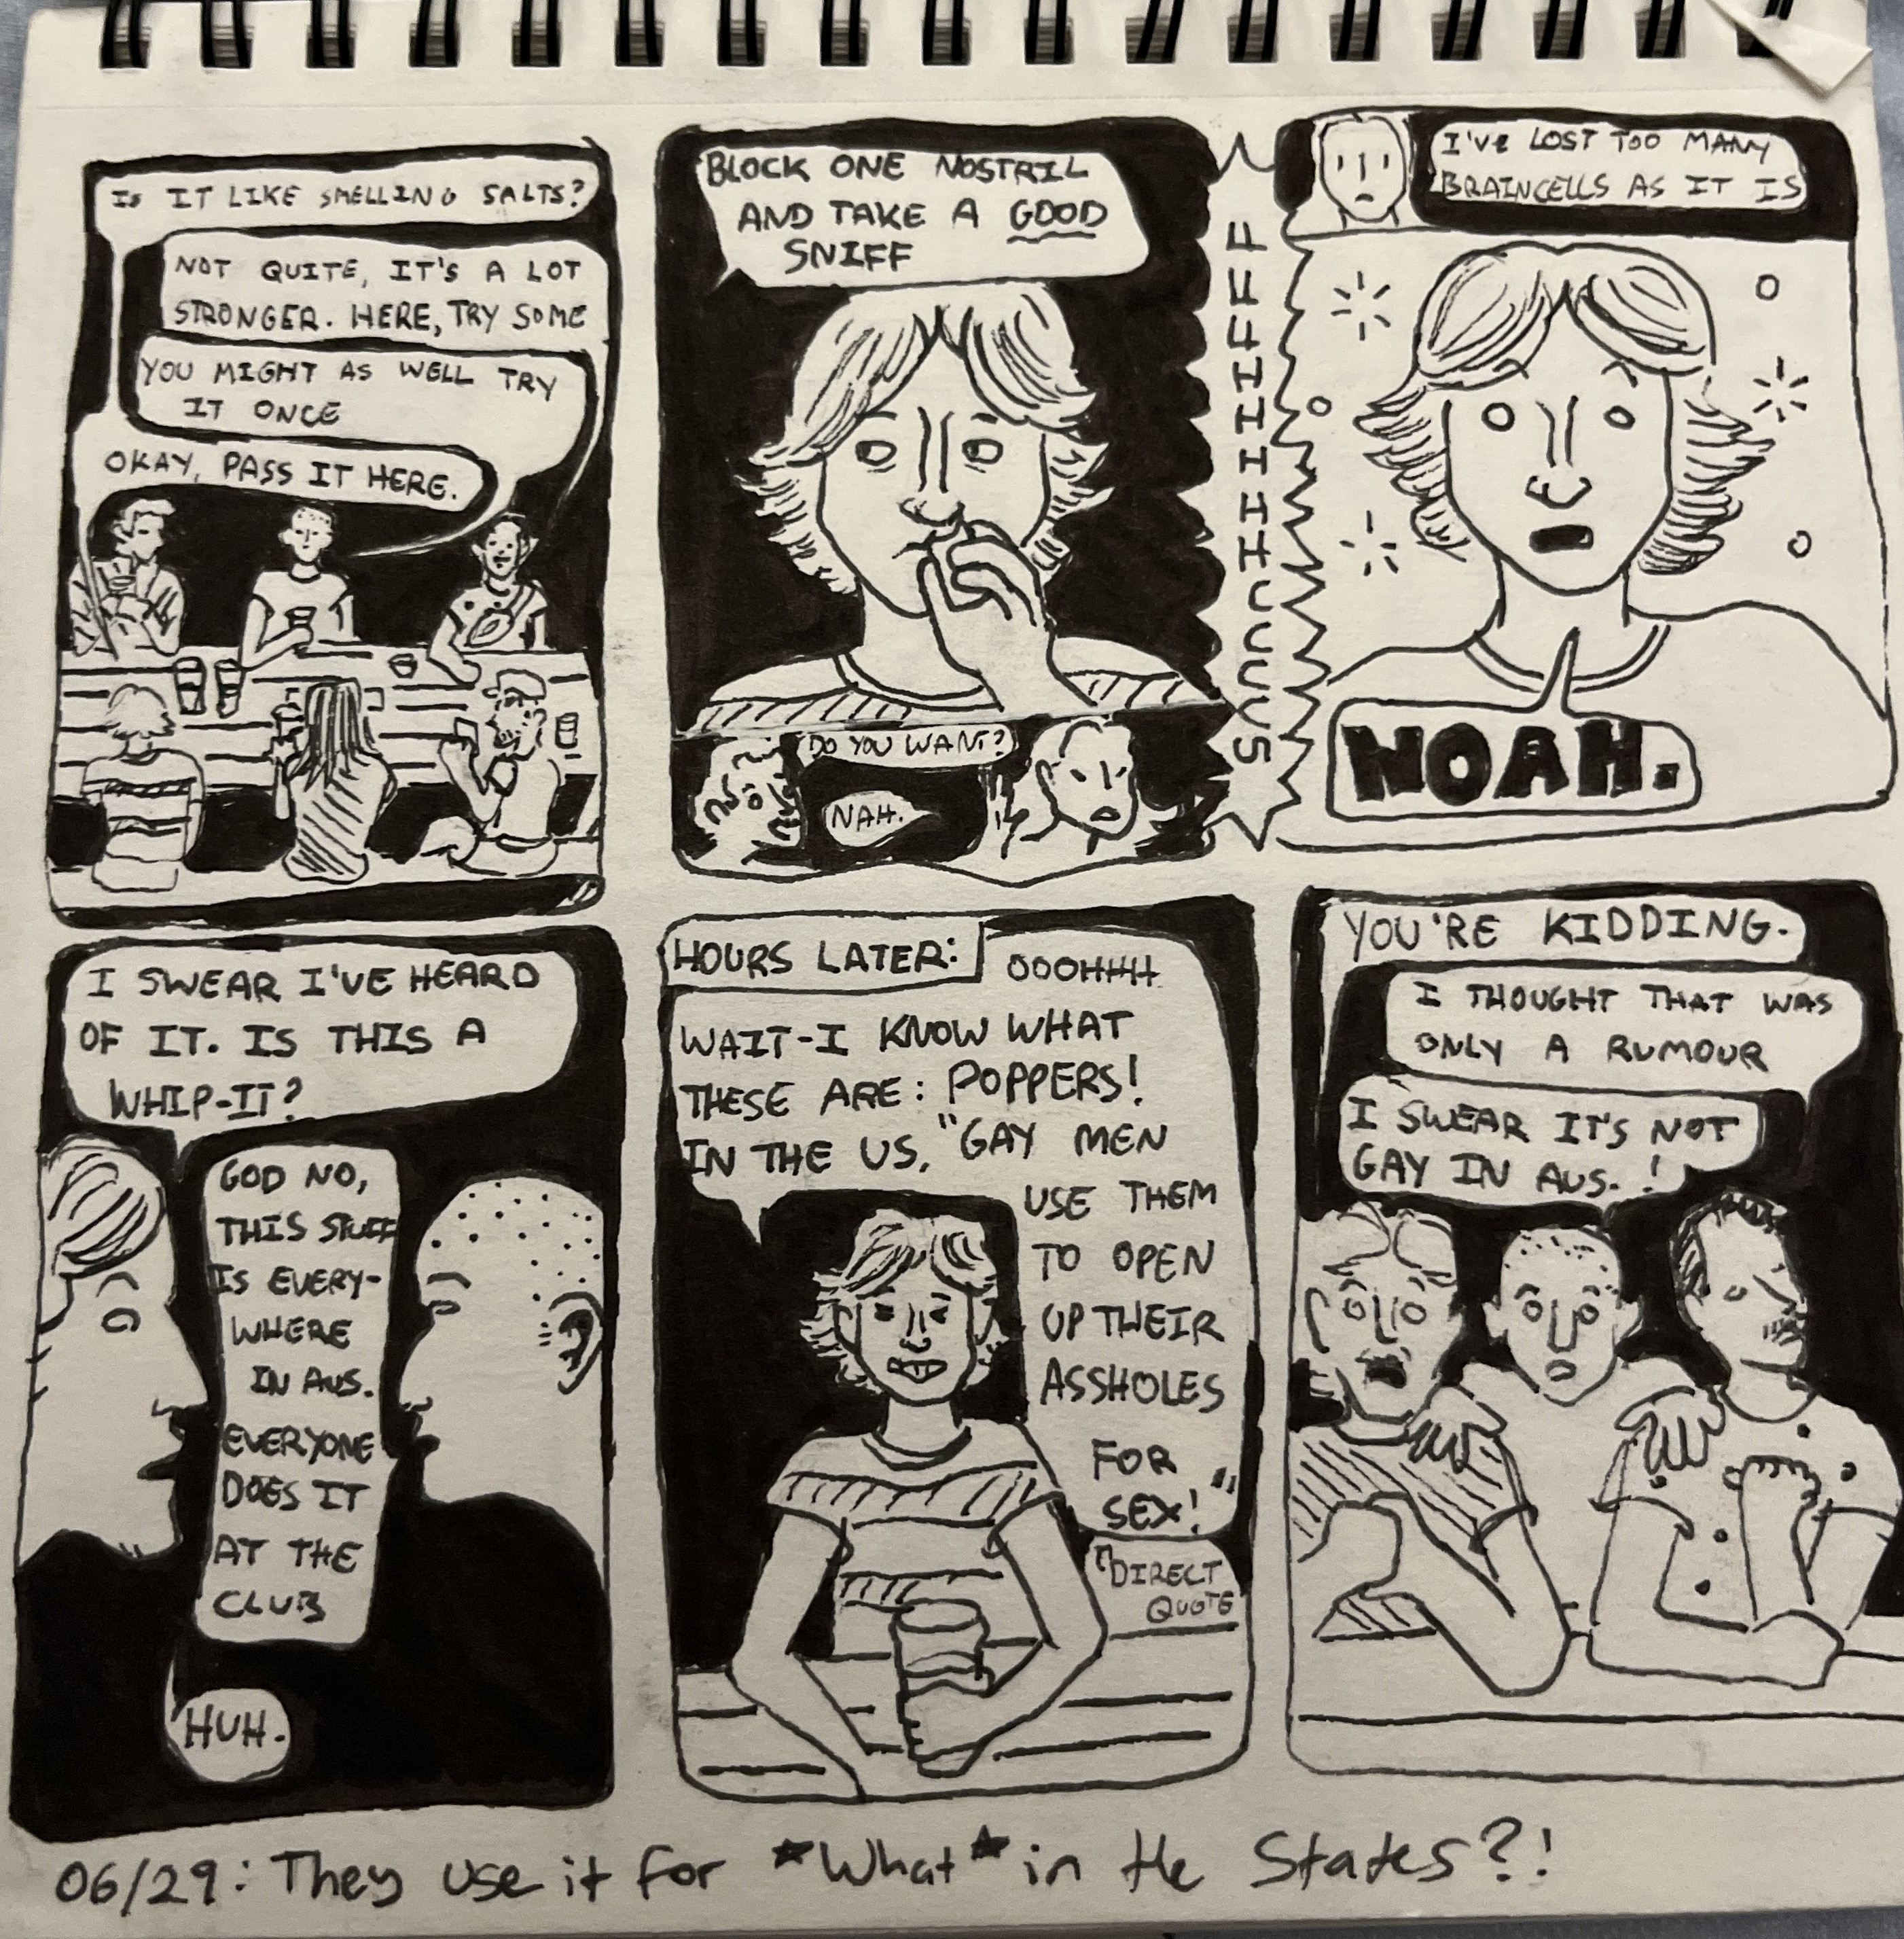 IS IT LIKE SMELLING SALTS?
NOT QUITE, IT'S A LOT
STRONGER. HERE, TRY SOME
YOU MIGHT AS WELL TRY
IT ONCE
OKAY, PASS IT HERE.
BLOCK ONE NOSTRIL
AND TAKE A GOOD
SNIFF
DO YOU WANT?
NAH.
I'VE LOST TOO MANY
BRAINCELLS AS IT IS
NOAH.
I SWEAR I'VE HEARD
OF IT. IS THIS A
WHIP-IT?
GOD NO,
THIS STUFF
IS EVERY-
WHERE
IN AUS.
EVERYONE
DOES IT
AT THE
CLUB
HUH.
HOURS LATER:
OOOHHH
WAIT-I KNOW WHAT
THESE ARE: POPPERS!
IN THE US, "GAY MEN
USE THEM
TO OPEN
UP THEIR
ASSHOLES
FOR
SEX!"
DIRECT
QUOTE
YOU'RE KIDDING.
I THOUGHT THAT WAS
ONLY A RUMOUR
I SWEAR IT'S NOT
GAY IN AUS.!
06/29: They use it for *What* in the States?!